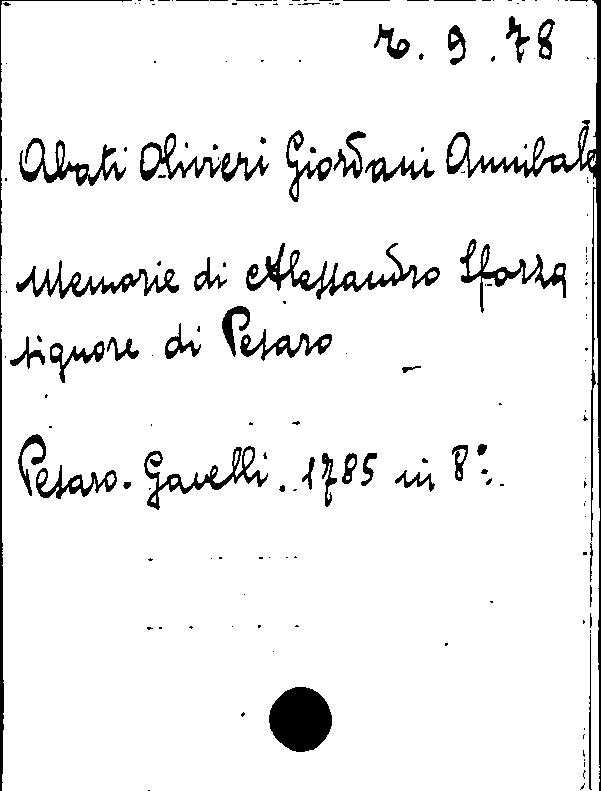 7. 9. 78
Abati Olivieri Giordani Annibale
Memorie di Alessandro Sforza
signore di Pesaro
Pesaro. Gavelli. 1785 in 8°.